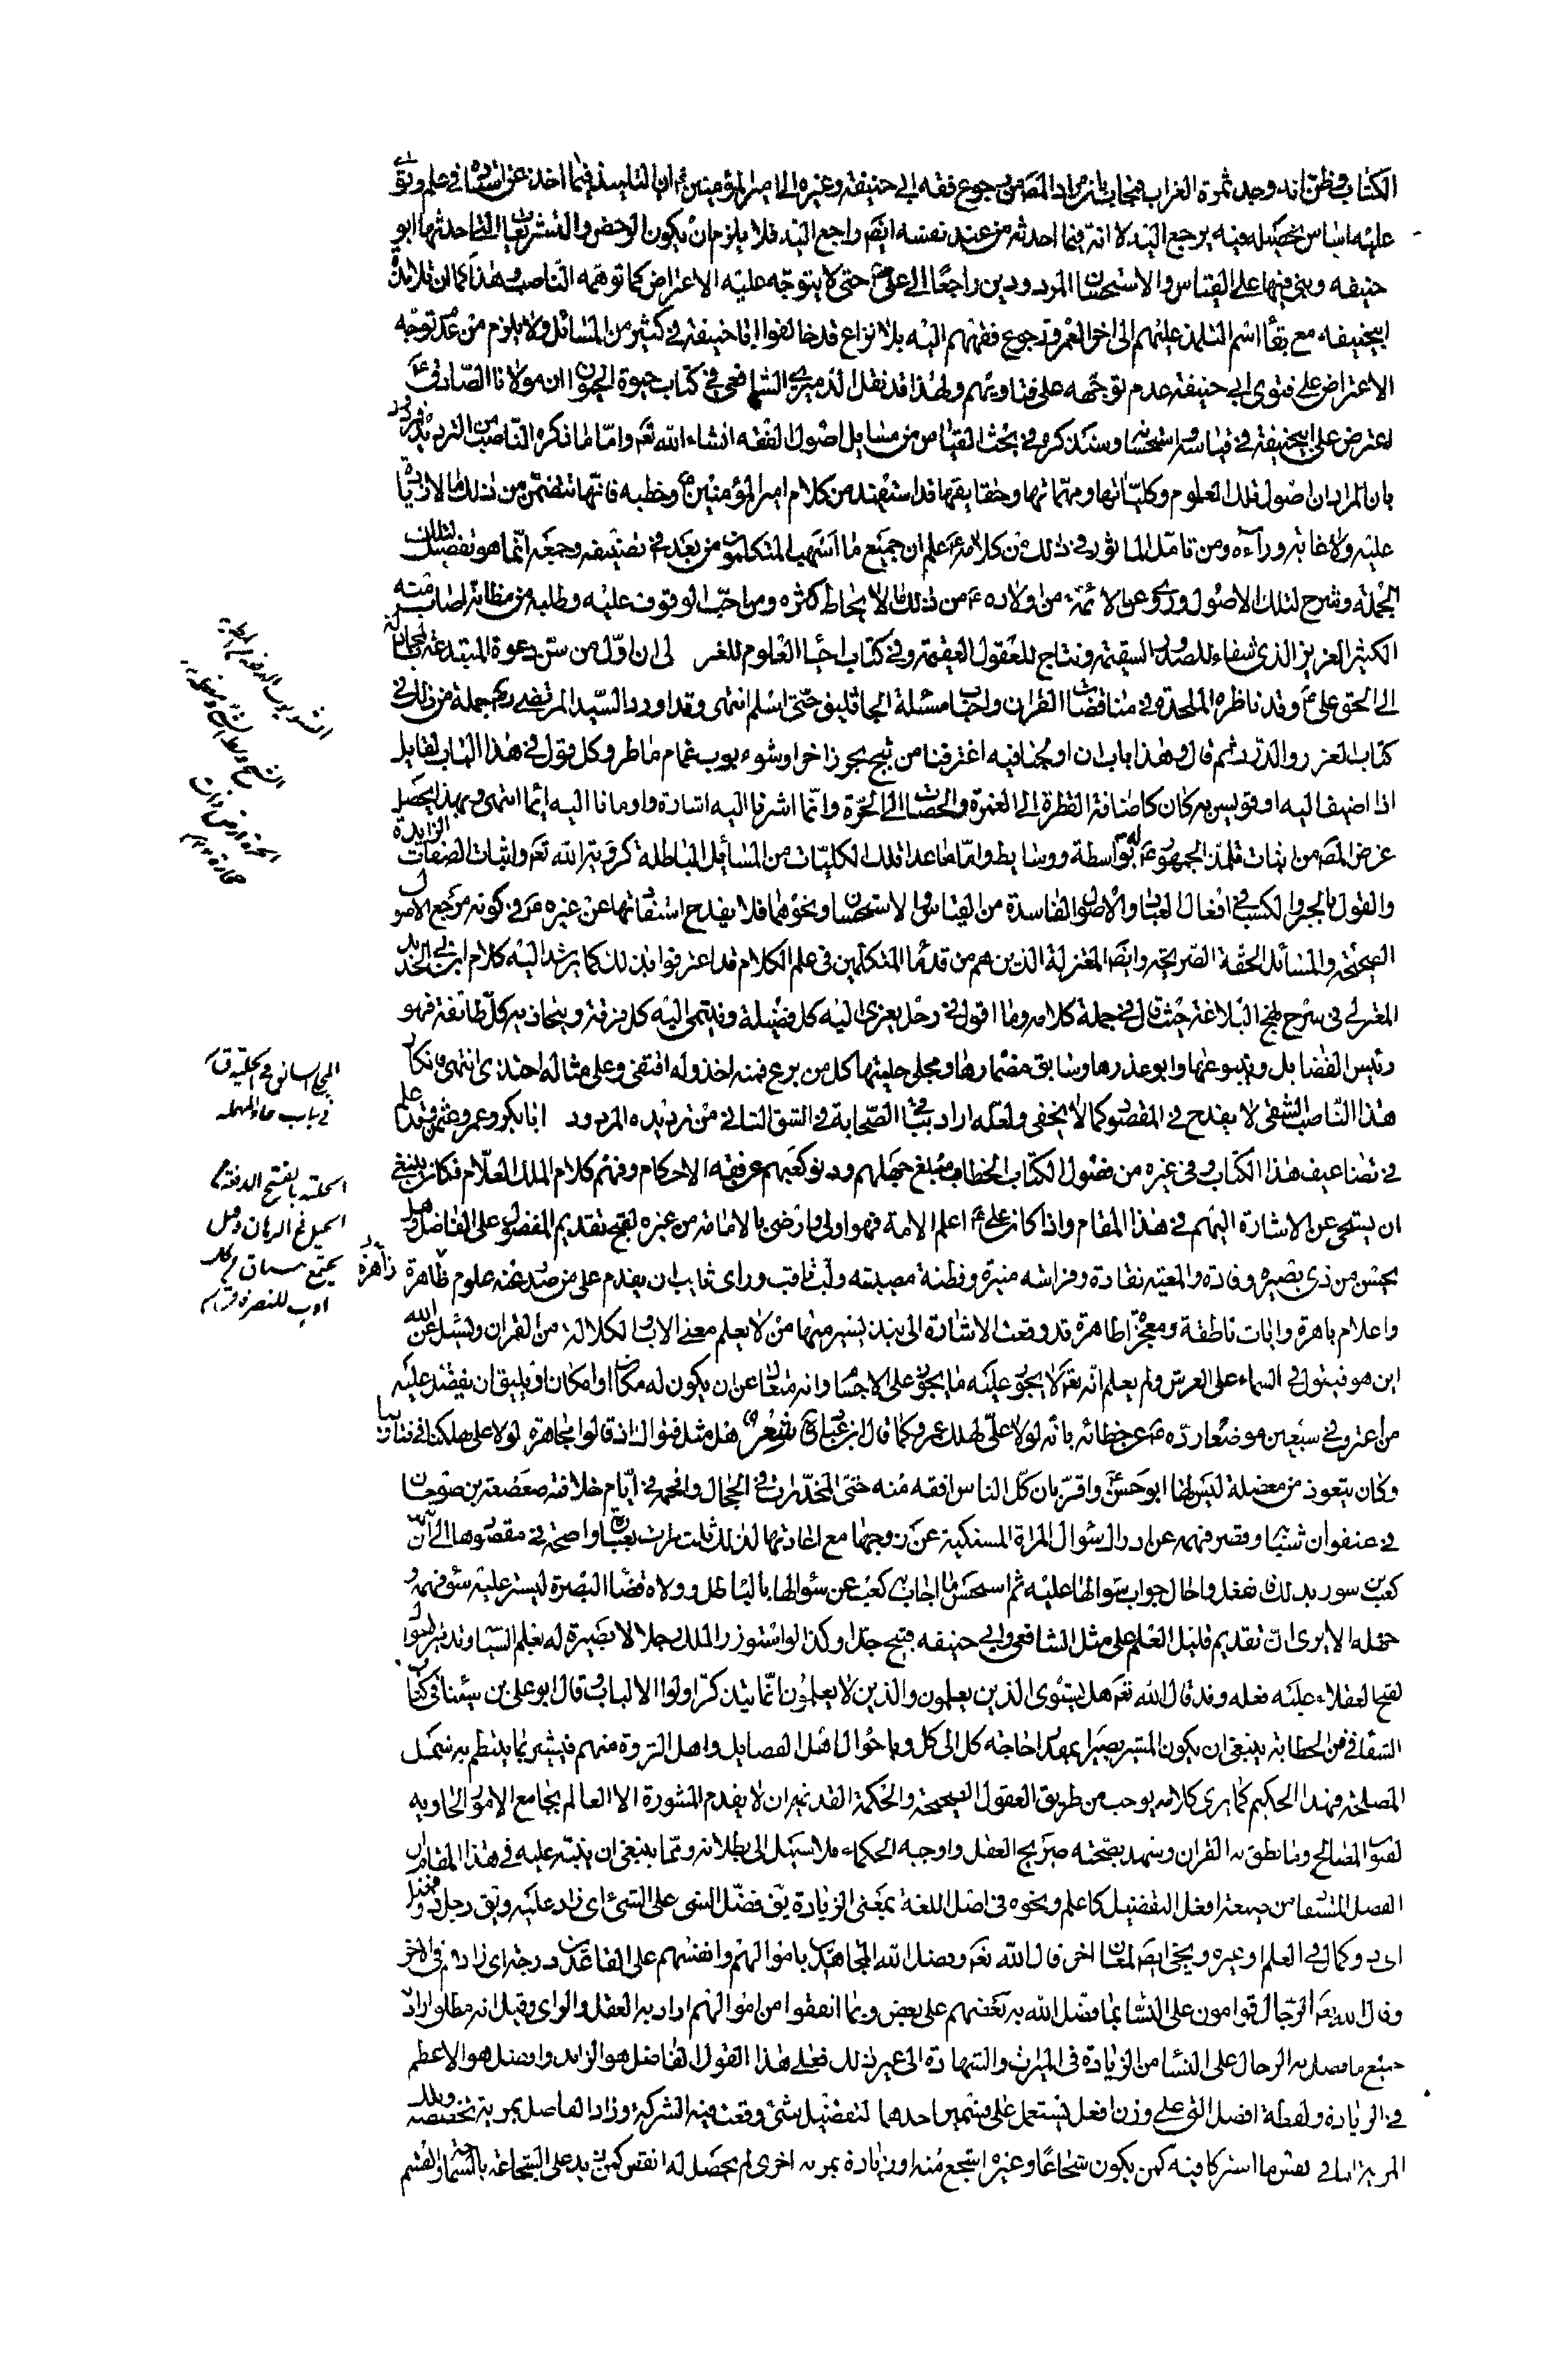 الكتاب فظن انه وجد ثمرة الغراب فيجاب بانه مراد المص من رجوع فقه ابي حنيفة وغيره الى امير المؤمنين ع ان التلميذ فيما اخذه عن استاده في علم وبقى
عليه اساس تحصيله فيه يرجع اليه لا انه فيما احدثه من عند نفسه ايض راجع اليه فلا يلزم ان يكون الرخص والتشريعات التي احدثها ابو
حنيفه وبنى فيها على القياس والاستحسان المردودين راجعا الى علي ع حتى لا يتوجه عليه الاعتراض كما توهمه الناصب هذا كما ان تلامذة
ابيحنيفه مع بقاء اسم التلمذ عليهم الى اخر العمر ورجوع فقههم اليه بلا نزاع قد خالفوا ابا حنيفة في كثير من المسائل ولا يلزم من عدم توجه
الاعتراض على فتوى ابي حنيفة عدم توجهه على فتاويهم ولهذا قد نقل الدميري الشافعي في كتاب حيوة الحيوان ان مولانا الصادق ع
اعترض على ابيحنيفة في قياسه واستحسانه وسنذكره في بحث القياس من مسايل اصول الفقه انشاء الله تع واما ما ذكره الناصب من الترديد فمردود
بان المراد ان اصول تلك العلوم وكلياتها ومهماتها وحقايقها قد استفيد من كلام امير المؤمنين ع وخطبه فانها تتضمن من ذلك ما لا زيادة
عليه ولا غاية وراءه ومن تامل الماثور في ذلك من كلامه ع علم ان جميع ما اسهب المتكلمون من بعد في تصنيفه وجمعه انما هو تفصيل لتلك
الجملة وشرح لتلك الاصول وروي عن الائمة من اولاده ع من ذلك ما لا يحاط كثره ومن احب الوقوف عليه وطلبه من مظانه اصاب منه
الكثير العزيز الذي شفاء للصدور السقيمة ونتاج للعقول العقيمة وفي كتاب احياء العلوم للغزالي ان اول من سن دعوة المبتدعة بالمجادلة
الى الحق علي ع وقد ناظره الملحدة في متناقضات القران واجاب مسئلة الجاثليق حتى اسلم انتهى وقد اورد السيد المرتضى ره جملة من ذلك في
كتاب الغرر والدرر ثم قال وهذا باب ان ولجنا فيه اغترفنا من ثبج بحر زاخر او شؤبوب غمام ماطر وكل قول في هذا الباب لقايل
اذا اضيف اليه او قويس به كان كاضافة القطرة الى الغمرة والحصاة الى الحرة وانما اشرنا اليه اشارة واومانا اليه ايماء انتهى وبهذا يحصل
غرض المص من اثبات تلمذ الجمهور له ع بواسطة ووسايط واما ما عدا تلك الكليات من المسائل الباطلة كرؤية الله تع واثبات الصفات الزايدة
والقول بالجبر والكسب في افعال العباد والاصول الفاسدة من القياس والاستحسان ونحوهما فلا يقدح استفادتها عن غيره ع في كونه مرجع الاصول
الصحيحة والمسائل الحقة الصريحة وايض المعتزلة الذين هم من قدماء المتكلمين في علم الكلام قد اعترفوا بذلك كما يرشد اليه كلام ابن ابي الحديد
المعتزلي في شرح نهج البلاغة حيث قال في جملة كلامه وما اقول في رجل يعزى اليه كل فضيلة وينتمي اليه كل فرقة ويتجاذبه كل طائفة فهو
رئيس الفضايل وينبوعها وابو عذرها وسابق مضمارها ومجلي حلبتها كل من برع فمنه اخذ وله اقتفى وعلى مثاله احتذى انتهى فانكار
هذا الناصب الشقي لا يقدح في المقصود كما لا يخفى ولعله اراد بباقي الصحابة في الشق الثاني من ترديده المردود ابا بكر وعمر وعثمن وقد علم
في تضاعيف هذا الكتاب وفي غيره من فصول الكتاب الخطاب مبلغ جهلهم ودنو كعبهم عن فقه الاحكام وفهم كلام الملك العلام فكان ينبغي
ان يستحي عن الاشارة اليهم في هذا المقام واذا كان علي ع اعلم الامة فهو اولى وارضى بالامامة من غيره لقبح تقديم المفضول على الفاضل وهل
يحسن من ذي بصيرة وقادة والمعية نقادة وفراسة منيرة وفطنة مصيبة ولب ثاقب وراى صايب ان يقدم على من صدر عنه علوم ظاهرة زاهرة
واعلام باهرة وايات ناطقة ومعجزة طاهرة قد وقعت الاشارة الى نبذ يسير منها من لا يعلم معنى الاب والكلالة من القران ويسئل عن الله
اين هو فيقول في السماء على العرش ولم يعلم انه تع لا يجوز عليه ما يجوز على الاجسام وانه متعال عن ان يكون له مكان او امكان او يليق ان يفضل عليه
من اعترف في سبعين موضعا رده ع عن خطائه بانه لولا علي لهلك عمر وكما قال ابن عباد ره شعر هل مثل قولك اذ قالوا مجاهرة لولا علي هلكنا في فتاوينا
وكان يتعوذ من معضلة ليس لها ابو حسن واقر بان كل الناس افقه منه حتى المخدرات في الحجال وافحمه في ايام خلافته صعصعة بن صوحان
في عنفوان شبابه وقصر فهمه عن ادراك سؤال المراة المستكية عن زوجها مع اعادتها لذلك ثلث مرات بعبارة واضحة في مقصودها الى ان
كعب بن سور بذلك فغفل واحال جواب سؤالها عليه ثم استحسن ما اجاب به كعب عن سؤالها بالباطل وولاه قضاء البصرة ليستر عليه سوء فهمه و
جهله الا يرى ان تقديم قليل العلم على مثل الشافعي وابي حنيفه قبيح جدا وكذا لو استوزر الملك رجلا لا بصيرة له بعلم السياسة وتدبير امور
لقبح العقلاء عليه فعله وقد قال الله تع هل يستوي الذين يعلمون والذين لا يعلمون انما يتذكر اولوا الالباب وقال ابو علي بن سينا في كتاب
الشفا في فن الخطابة ينبغي ان يكون المشير بصيرا بمقدار حاجة كل الى كل وباحوال اهل الفضايل واهل الثروة منهم فيشير بما ينتظم به شمل
المصلحة فهذا الحكيم كما يرى كلامه يوجب من طريق العقول الصحيحة والحكمة القديمة ان لا يقدم للمشورة الا العالم بجامع الامور الحاويه
لفنون المصالح وما نطق به القران وشهد بصحته صريح العقل واوجبه الحكماء فلا سبيل الى بطلانه ومما ينبغي ان ينبه عليه في هذا المقام ان
الفضل المستفاد من صيغة افعل التفضيل كاعلم ونحوه في اصل اللغة بمعنى الزيادة يق فضل الشي على الشئ اي زاد عليه ويق رجل ذو فضل
اي ذو كمال في العلم او غيره ويجئ ايض لمعان اخر قال الله تع وفضل الله المجاهدين باموالهم وانفسهم على القاعدين درجة اي زادهم في الاجر
وقال الله تع الرجال قوامون على النساء بما فضل الله به بعضهم على بعض وبما انفقوا من اموالهم اراد به العقل والراى وقيل انه مطلق اراد
جميع ما فضل به الرجال على النسا من الزيادة في الميراث والشهادة الى غير ذلك فعلى هذا القول الفاضل هو الزايد وافضل هو الاعظم
في الزيادة ولفظة افضل التي على وزن افعل ليستعمل على قسمين احدهما لتفضيل شئ وقعت فيه الشركة وزاد الفاضل بمزية تخصيصه وتلك
المزية اما في نفس ما اشتركا فيه كمن يكون شجاعا وغيره اشجع منه او زيادة بمزية اخرى لم يحصل له انقص كمن يزيد على الشجاعة بالسخاء والقسم
المجلي السابق في الحلبة ق
في باب حاء المهملة
الحلبة بالفتح الدفعة من
الخيل في الرهان وخيل
يجتمع للسباق من كل
اوب للنصرة ق